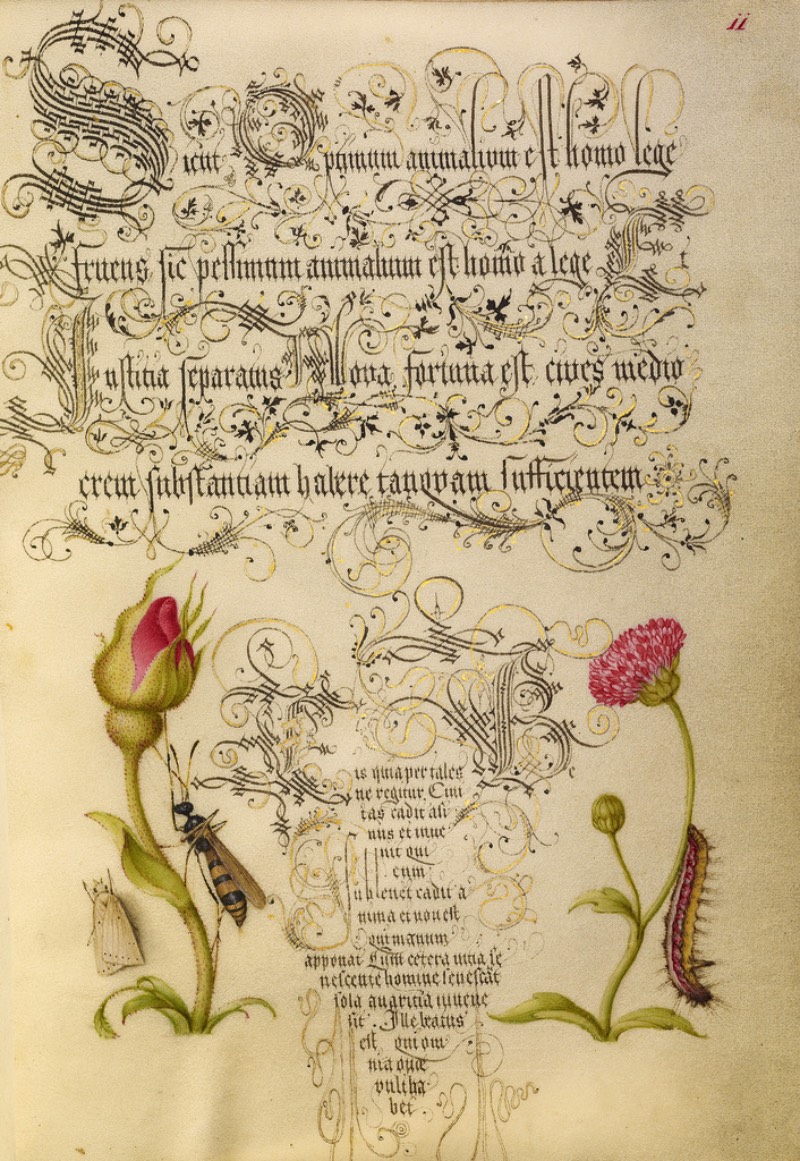 ii
Sicut Optimum animalium est homo lege
fruens, sic pessimum animalium est homo a lege Et
Iustitia separatus Nova fortuna est cives medio
crem substantiam habere tanquam sufficientem
His quia per tales Be
ne regitur. Civi
tas cadit asi
nus et inve
nit qui
eum
sublevet cadit a
nima et non est
qui manum
apponat Cum cetera vitia se
nescente homine senescat
sola avaritia iuvene
sit. Ille beatus
est qui om
nia quae
vult ha
bet.